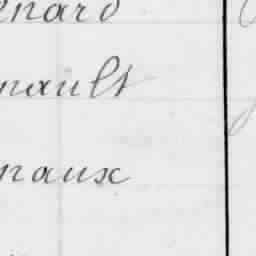 enard
nault
naux